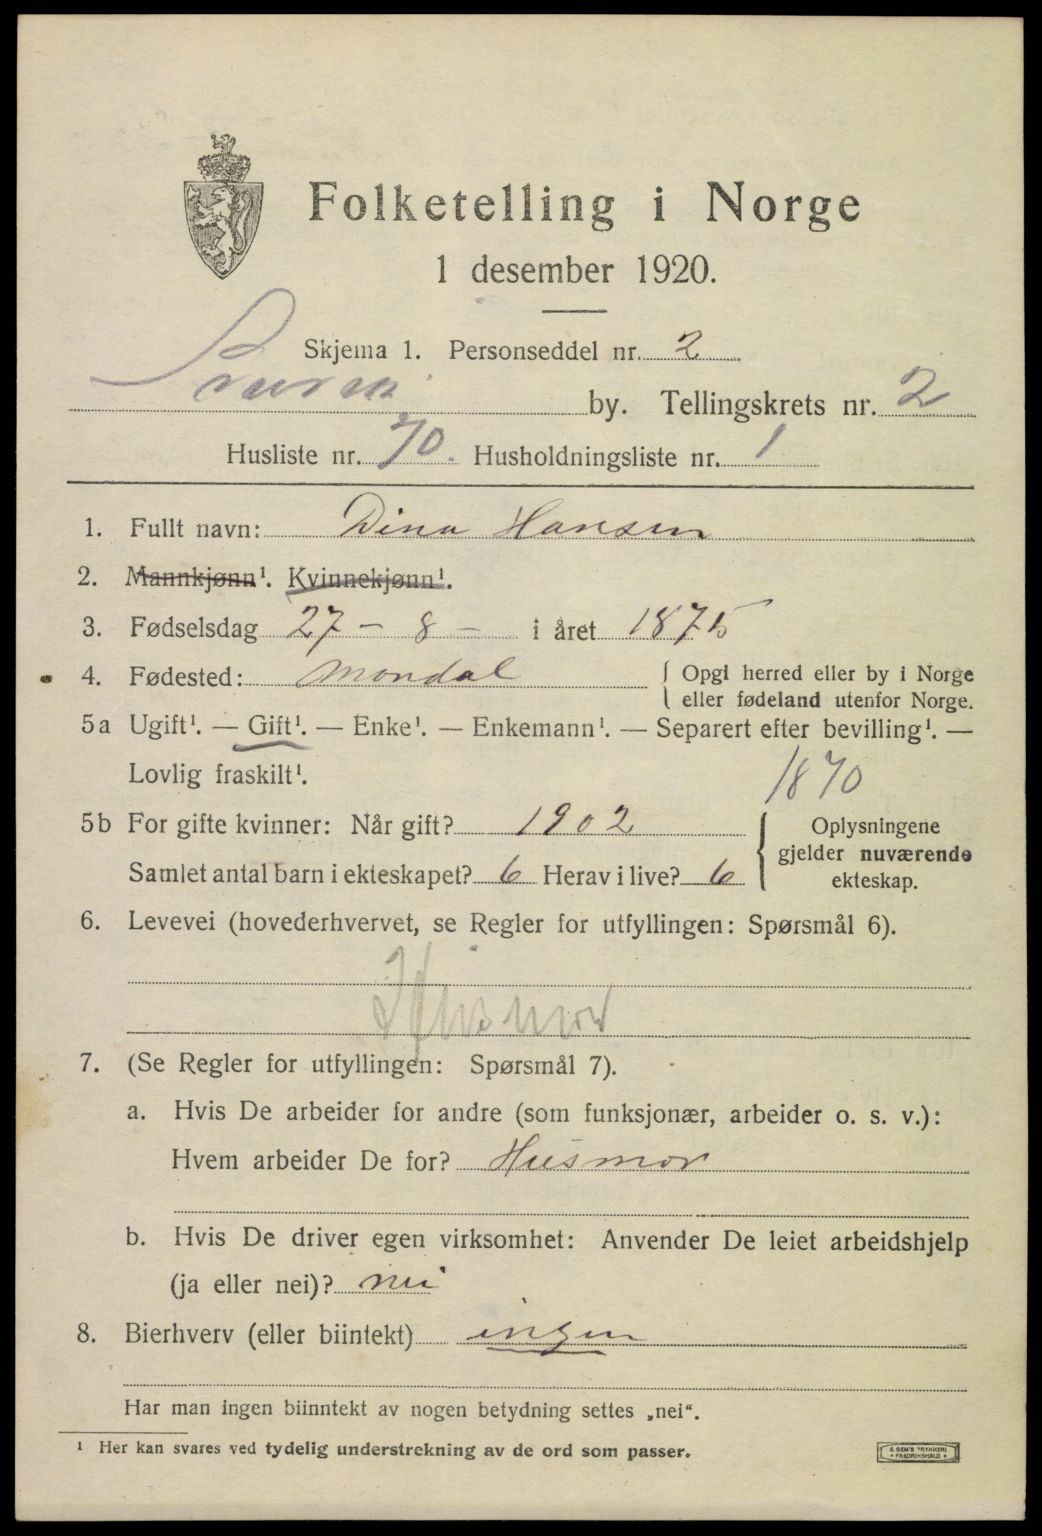 Folketelling i Norge
1 desember 1920.
Skjema 1. Personseddel nr. 2
by. Tellingskrets nr. 2
Husliste nr. 70. Husholdningsliste nr. 1
1. Fullt navn: Dina Hansen
2. Mannkjønn¹. Kvinnekjønn¹.
3. Fødselsdag 27 - 8 - i året 1875
4. Fødested: Mandal { Opgi herred eller by i Norge
eller fødeland utenfor Norge.
5a Ugift¹. — Gift¹. — Enke¹. — Enkemann¹. — Separert efter bevilling¹. —
Lovlig fraskilt¹.
1870
5b For gifte kvinner: Når gift? 1902 { Oplysningene
gjelder nuværende
Samlet antal barn i ekteskapet? 6 Herav i live? 6
ekteskap.
6. Levevei (hovederhvervet, se Regler for utfyllingen: Spørsmål 6).
Husmor
7. (Se Regler for utfyllingen: Spørsmål 7).
a. Hvis De arbeider for andre (som funksjonær, arbeider o. s. v.):
Hvem arbeider De for? Husmor
b. Hvis De driver egen virksomhet: Anvender De leiet arbeidshjelp
(ja eller nei)? nei
8. Bierhverv (eller biintekt) ingen
Har man ingen biinntekt av nogen betydning settes „nei“.
¹ Her kan svares ved tydelig understrekning av de ord som passer.
E. SEM'S TRYKKERI
• FREDRIKSHALD •